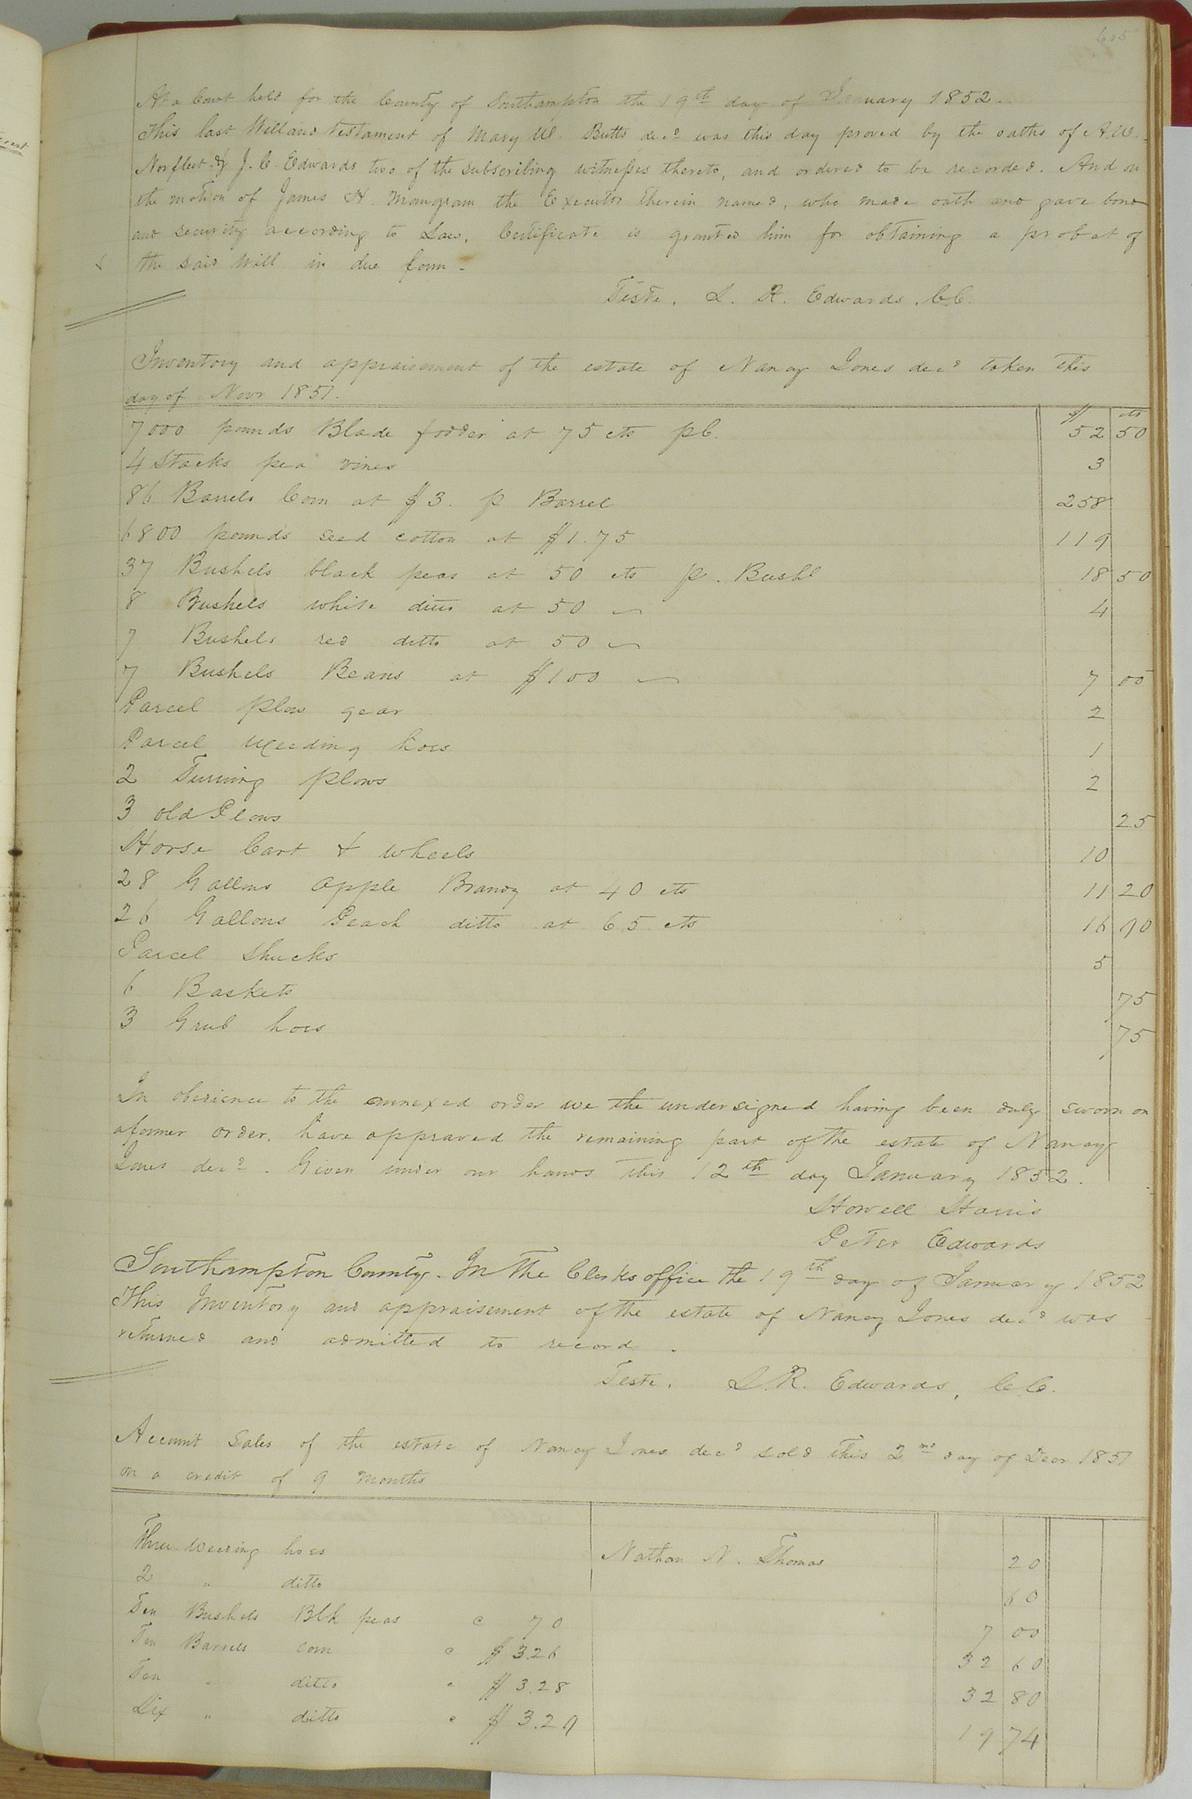 605
At a Court held for the County of Southampton the 19th day of January 1852.
This last Will and testament of Mary W. Butts decd was this day proved by the oaths of A. W.
Norfleet & J. C. Edwards two of the subscribing witnesses thereto, and ordered to be recorded. And on
the motion of James H. Mangram the Executor therein named, who made oath and gave bond
and security according to Law, Certificate is granted him for obtaining a probat of
the said Will in due form.
Teste. L. R. Edwards. C.C.
Inventory and appraisement of the estate of Nancy Jones decd taken this
day of Novr 1851.
$ cts
7000 pounds Blade fodder at 75 cts pC. 52 50
4 Stacks pea vines 3
86 Barrels Corn at $3. p Barrel 258
6800 pounds seed cotton at $1.75 119
37 Bushels black peas at 50 cts p. Bushl 18 50
8 Bushels white ditto at 50 4
7 Bushels red ditto at 50
7 Bushels Beans at $100 7 00
Parcel plow gear 2
Parcel weeding hoes 1
2 Turning plows 2
3 old Plows 25
Horse Cart & wheels 10
28 Gallons apple Brandy at 40 cts 11 20
26 Gallons Peach ditto at 65 cts 16 90
Parcel Shucks 5
6 Baskets 75
3 Grub hoes 75
In obedience to the annexed order we the undersigned having been duly sworn on
a former order, have appraised the remaining part of the estate of Nancy
Jones decd. Given under our hands this 12th day January 1852.
Howell Harris
Peter Edwards
Southampton County. In the Clerks office the 19th day of January 1852
This Inventory and appraisement of the estate of Nancy Jones decd was
returned and admitted to record.
Teste. L. R. Edwards, C.C.
Account Sales of the estate of Nancy Jones decd sold this 2nd day of Decr 1851
on a credit of 9 months
Three weeding hoes Nathan N. Thomas 20
2 " ditto 60
Ten Bushels Blk peas @ 70 7 00
Ten Barrels corn " $3.26 32 60
Ten " ditto " $3.28 32 80
Six " ditto " $3.29 19 74